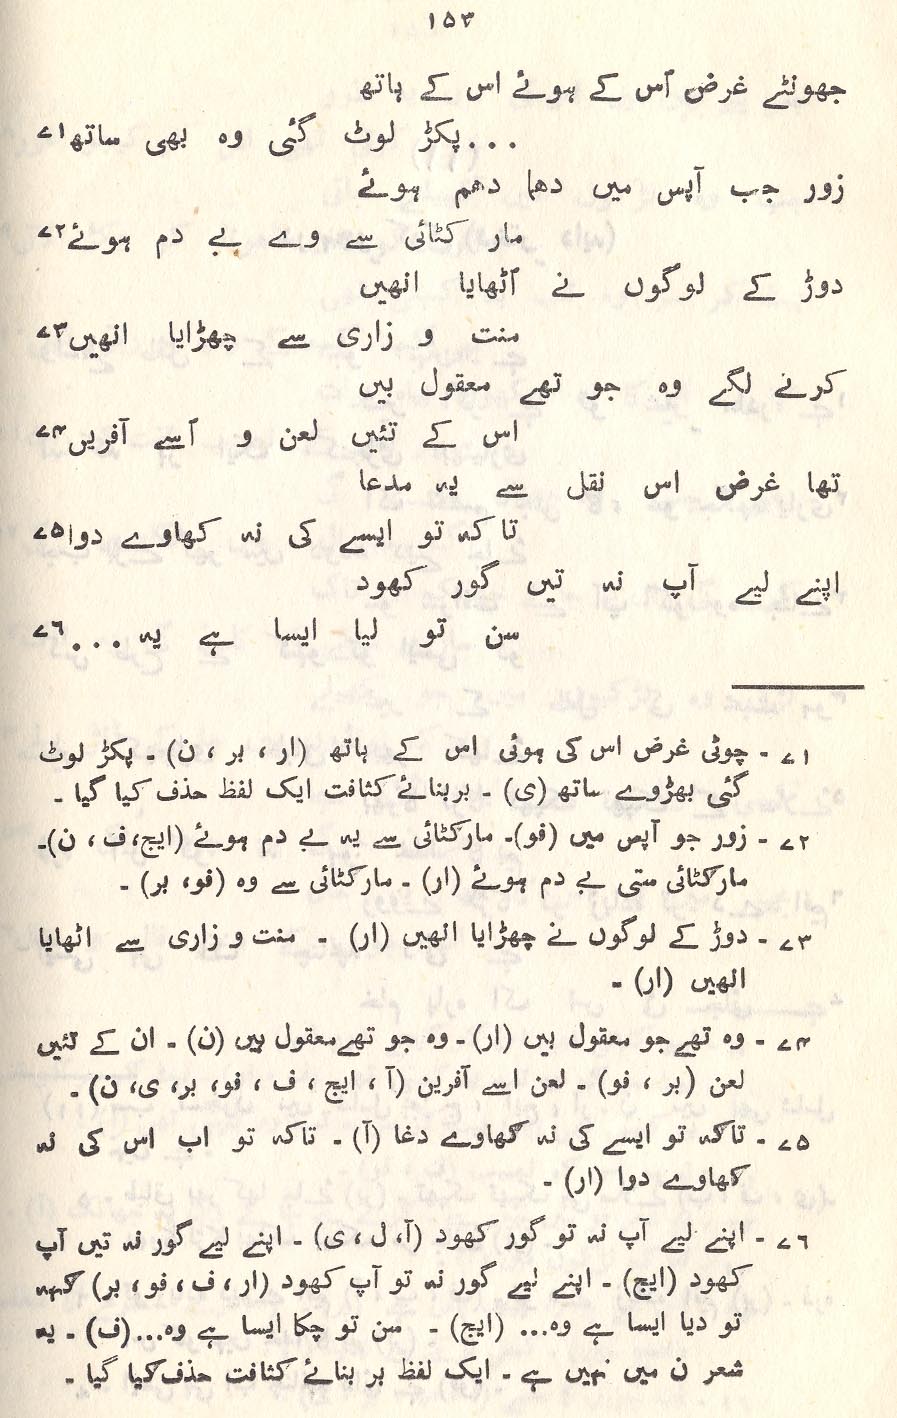 ۱۵۳
جھونٹے غرض اُس کے ہوئے اس کے ہاتھ
...پکڑ لوٹ گئی وہ بھی ساتھ۷۱
زور جب آپس میں دھما دھم ہوئے
مار کٹائی سے وے بے دم ہوئے۷۲
دوڑ کے لوگوں نے اُٹھایا انھیں
منت و زاری سے چھڑایا انھیں۷۳
کرنے لگے وہ جو تھے معقول بیں
اس کے تئیں لعن و اُسے آفریں۷۴
تھا غرض اس نقل سے یہ مدعا
تا کہ تو ایسے کی نہ کھاوے دوا۷۵
اپنے لیے آپ نہ تیں گور کھود
سن تو لیا ایسا ہے یہ...۷۶
۷۱ - چوٹی غرض اس کی ہوئی اس کے ہاتھ (ار ، بر ، ن) - پکڑ لوٹ
گئی بھڑوے ساتھ (ی) - بربنائے کثافت ایک لفظ حذف کیا گیا -
۷۲ - زور جو آپس میں (فو)- مارکٹائی سے یہ بے دم ہوئے (ایچ، ف ، ن)-
مارکٹائی ستی بے دم ہوئے (ار) - مارکٹائی سے وہ (فو، بر) -
۷۳ - دوڑ کے لوگوں نے چھڑایا انھیں (ار) - منت و زاری سے اٹھایا
انھیں (ار) -
۷۴ - وہ تھے جو معقول بیں (ار)- وہ جو تھے معقول ہیں (ن) - ان کے تئیں
لعن (بر ، فو) - لعن اسے آفرین (آ ، ایچ ، ف ، فو، بر، ی، ن) -
۷۵ - تاکہ تو ایسے کی نہ کھاوے دغا (آ) - تاکہ تو اب اس کی نہ
کھاوے دوا (ار) -
۷۶ - اپنے لیے آپ نہ تو گور کھود (آ، ل ، ی) - اپنے لیے گور نہ تیں آپ
کھود (ایچ) - اپنے لیے گور نہ تو آپ کھود (ار ، ف ، فو ، بر) کہہ
تو دیا ایسا ہے وہ... (ایچ) - سن تو چکا ایسا ہے وہ...(ف) - یہ
شعر ن میں نہیں ہے - ایک لفظ بر بنائے کثافت حذف کیا گیا -